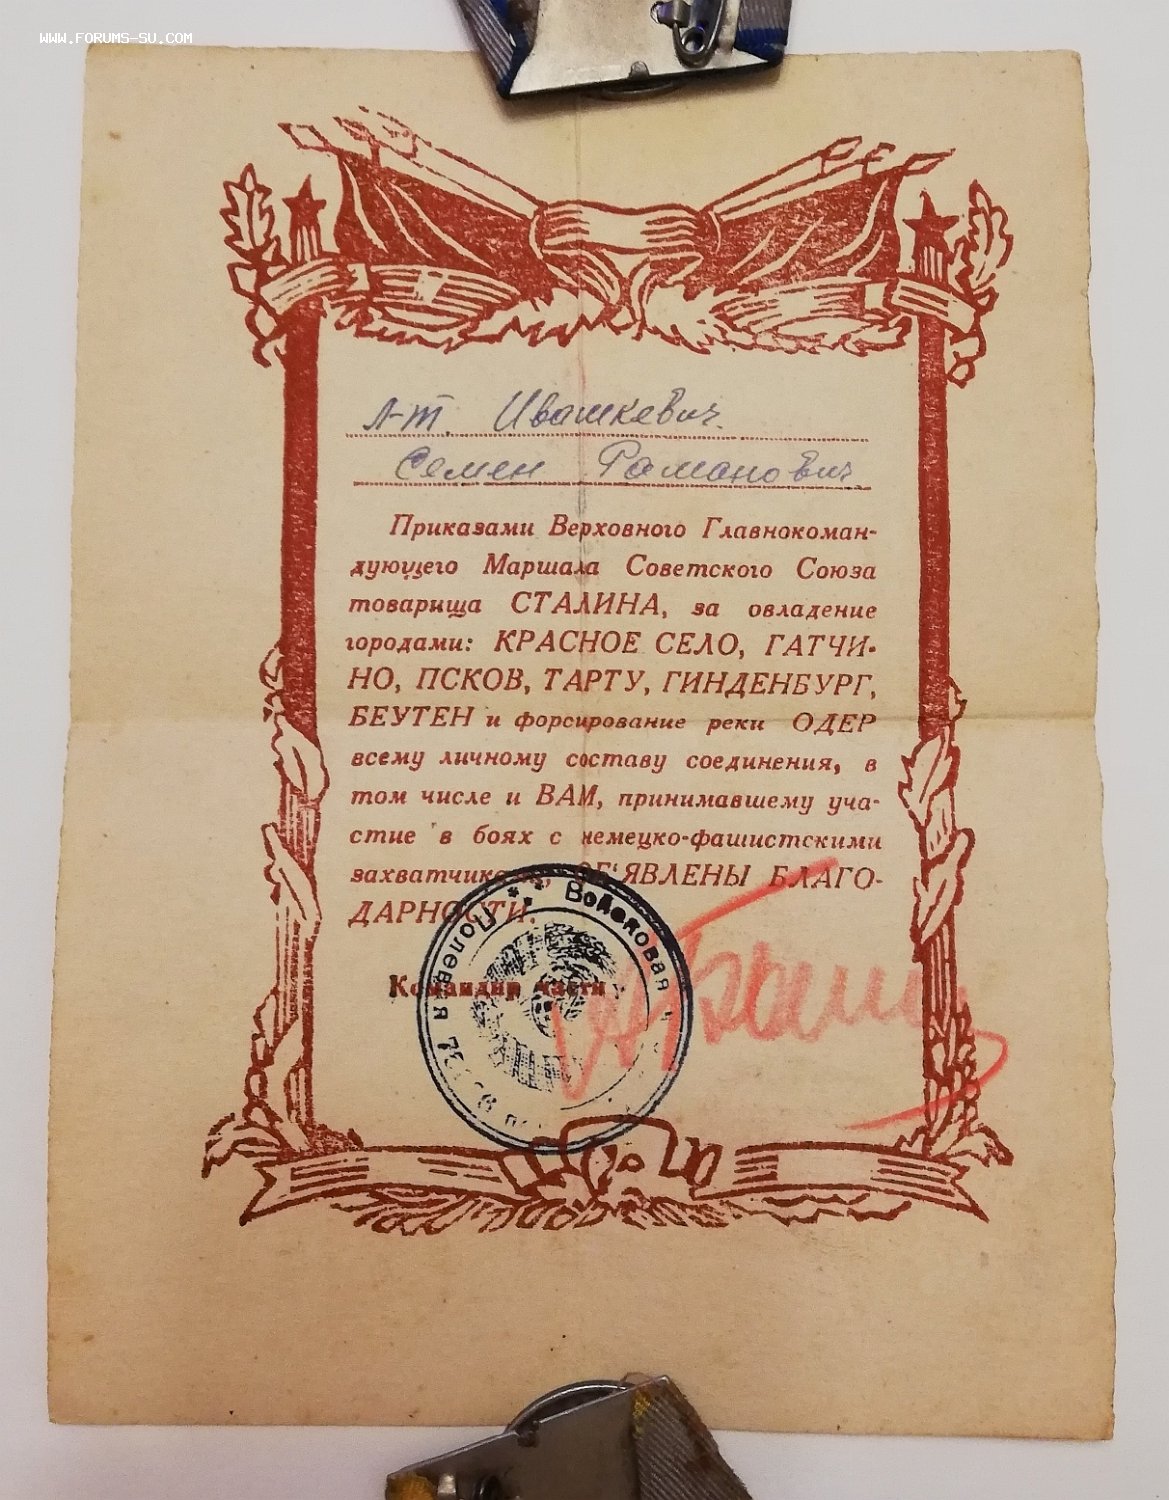 WWW.FORUMS-SU.COM
л-т. Ивашкевич.
Семен Романович.
Приказами Верховного Главнокоман-
дующего Маршала Советского Союза
товарища СТАЛИНА, за овладение
городами: КРАСНОЕ СЕЛО, ГАТЧИ-
НО, ПСКОВ, ТАРТУ, ГИНДЕНБУРГ,
БЕУТЕН и форсирование реки ОДЕР
всему личному составу соединения, в
том числе и ВАМ, принимавшему уча-
стие в боях с немецко-фашистскими
захватчиками, ОБ'ЯВЛЕНЫ БЛАГО-
ДАРНОСТИ.
Командир части
Полевая